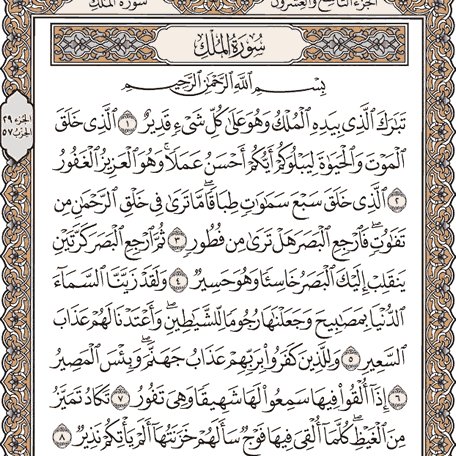 الجزء التاسع والعشرون سورة الملك
سُورَةُ المُلْكِ
بِسْمِ ٱللَّهِ ٱلرَّحْمَٰنِ ٱلرَّحِيمِ
تَبَٰرَكَ ٱلَّذِى بِيَدِهِ ٱلْمُلْكُ وَهُوَ عَلَىٰ كُلِّ شَىْءٍ قَدِيرٌ ١ ٱلَّذِى خَلَقَ
ٱلْمَوْتَ وَٱلْحَيَوٰةَ لِيَبْلُوَكُمْ أَيُّكُمْ أَحْسَنُ عَمَلًا ۚ وَهُوَ ٱلْعَزِيزُ ٱلْغَفُورُ
٢ ٱلَّذِى خَلَقَ سَبْعَ سَمَٰوَٰتٍ طِبَاقًا ۖ مَّا تَرَىٰ فِى خَلْقِ ٱلرَّحْمَٰنِ مِن
تَفَٰوُتٍ ۖ فَٱرْجِعِ ٱلْبَصَرَ هَلْ تَرَىٰ مِن فُطُورٍ ٣ ثُمَّ ٱرْجِعِ ٱلْبَصَرَ كَرَّتَيْنِ
يَنقَلِبْ إِلَيْكَ ٱلْبَصَرُ خَاسِئًا وَهُوَ حَسِيرٌ ٤ وَلَقَدْ زَيَّنَّا ٱلسَّمَآءَ
ٱلدُّنْيَا بِمَصَٰبِيحَ وَجَعَلْنَٰهَا رُجُومًا لِّلشَّيَٰطِينِ ۖ وَأَعْتَدْنَا لَهُمْ عَذَابَ
ٱلسَّعِيرِ ٥ وَلِلَّذِينَ كَفَرُوا۟ بِرَبِّهِمْ عَذَابُ جَهَنَّمَ ۖ وَبِئْسَ ٱلْمَصِيرُ
٦ إِذَآ أُلْقُوا۟ فِيهَا سَمِعُوا۟ لَهَا شَهِيقًا وَهِىَ تَفُورُ ٧ تَكَادُ تَمَيَّزُ
مِنَ ٱلْغَيْظِ ۖ كُلَّمَآ أُلْقِىَ فِيهَا فَوْجٌ سَأَلَهُمْ خَزَنَتُهَآ أَلَمْ يَأْتِكُمْ نَذِيرٌ ٨
الجزء ٢٩
الحزب ٥٧